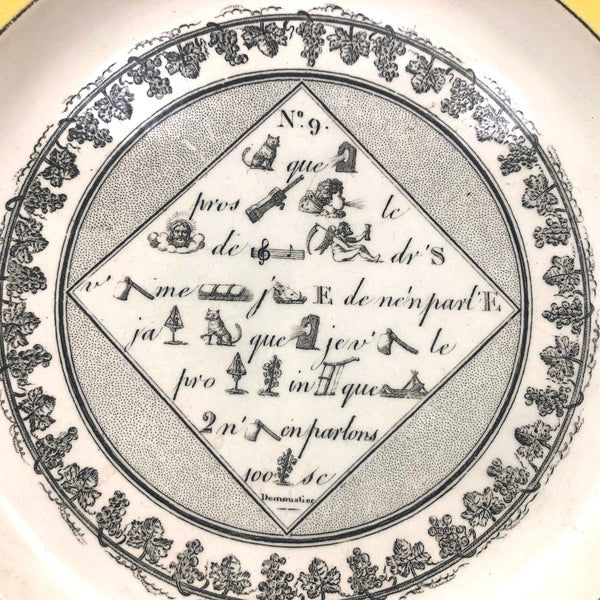 No. 9.
que
pros le
de dr's
v' me j' E de n'en parl'E
ja que je v' le
pro in que
2 n' en parlons
100 se
Demoustier